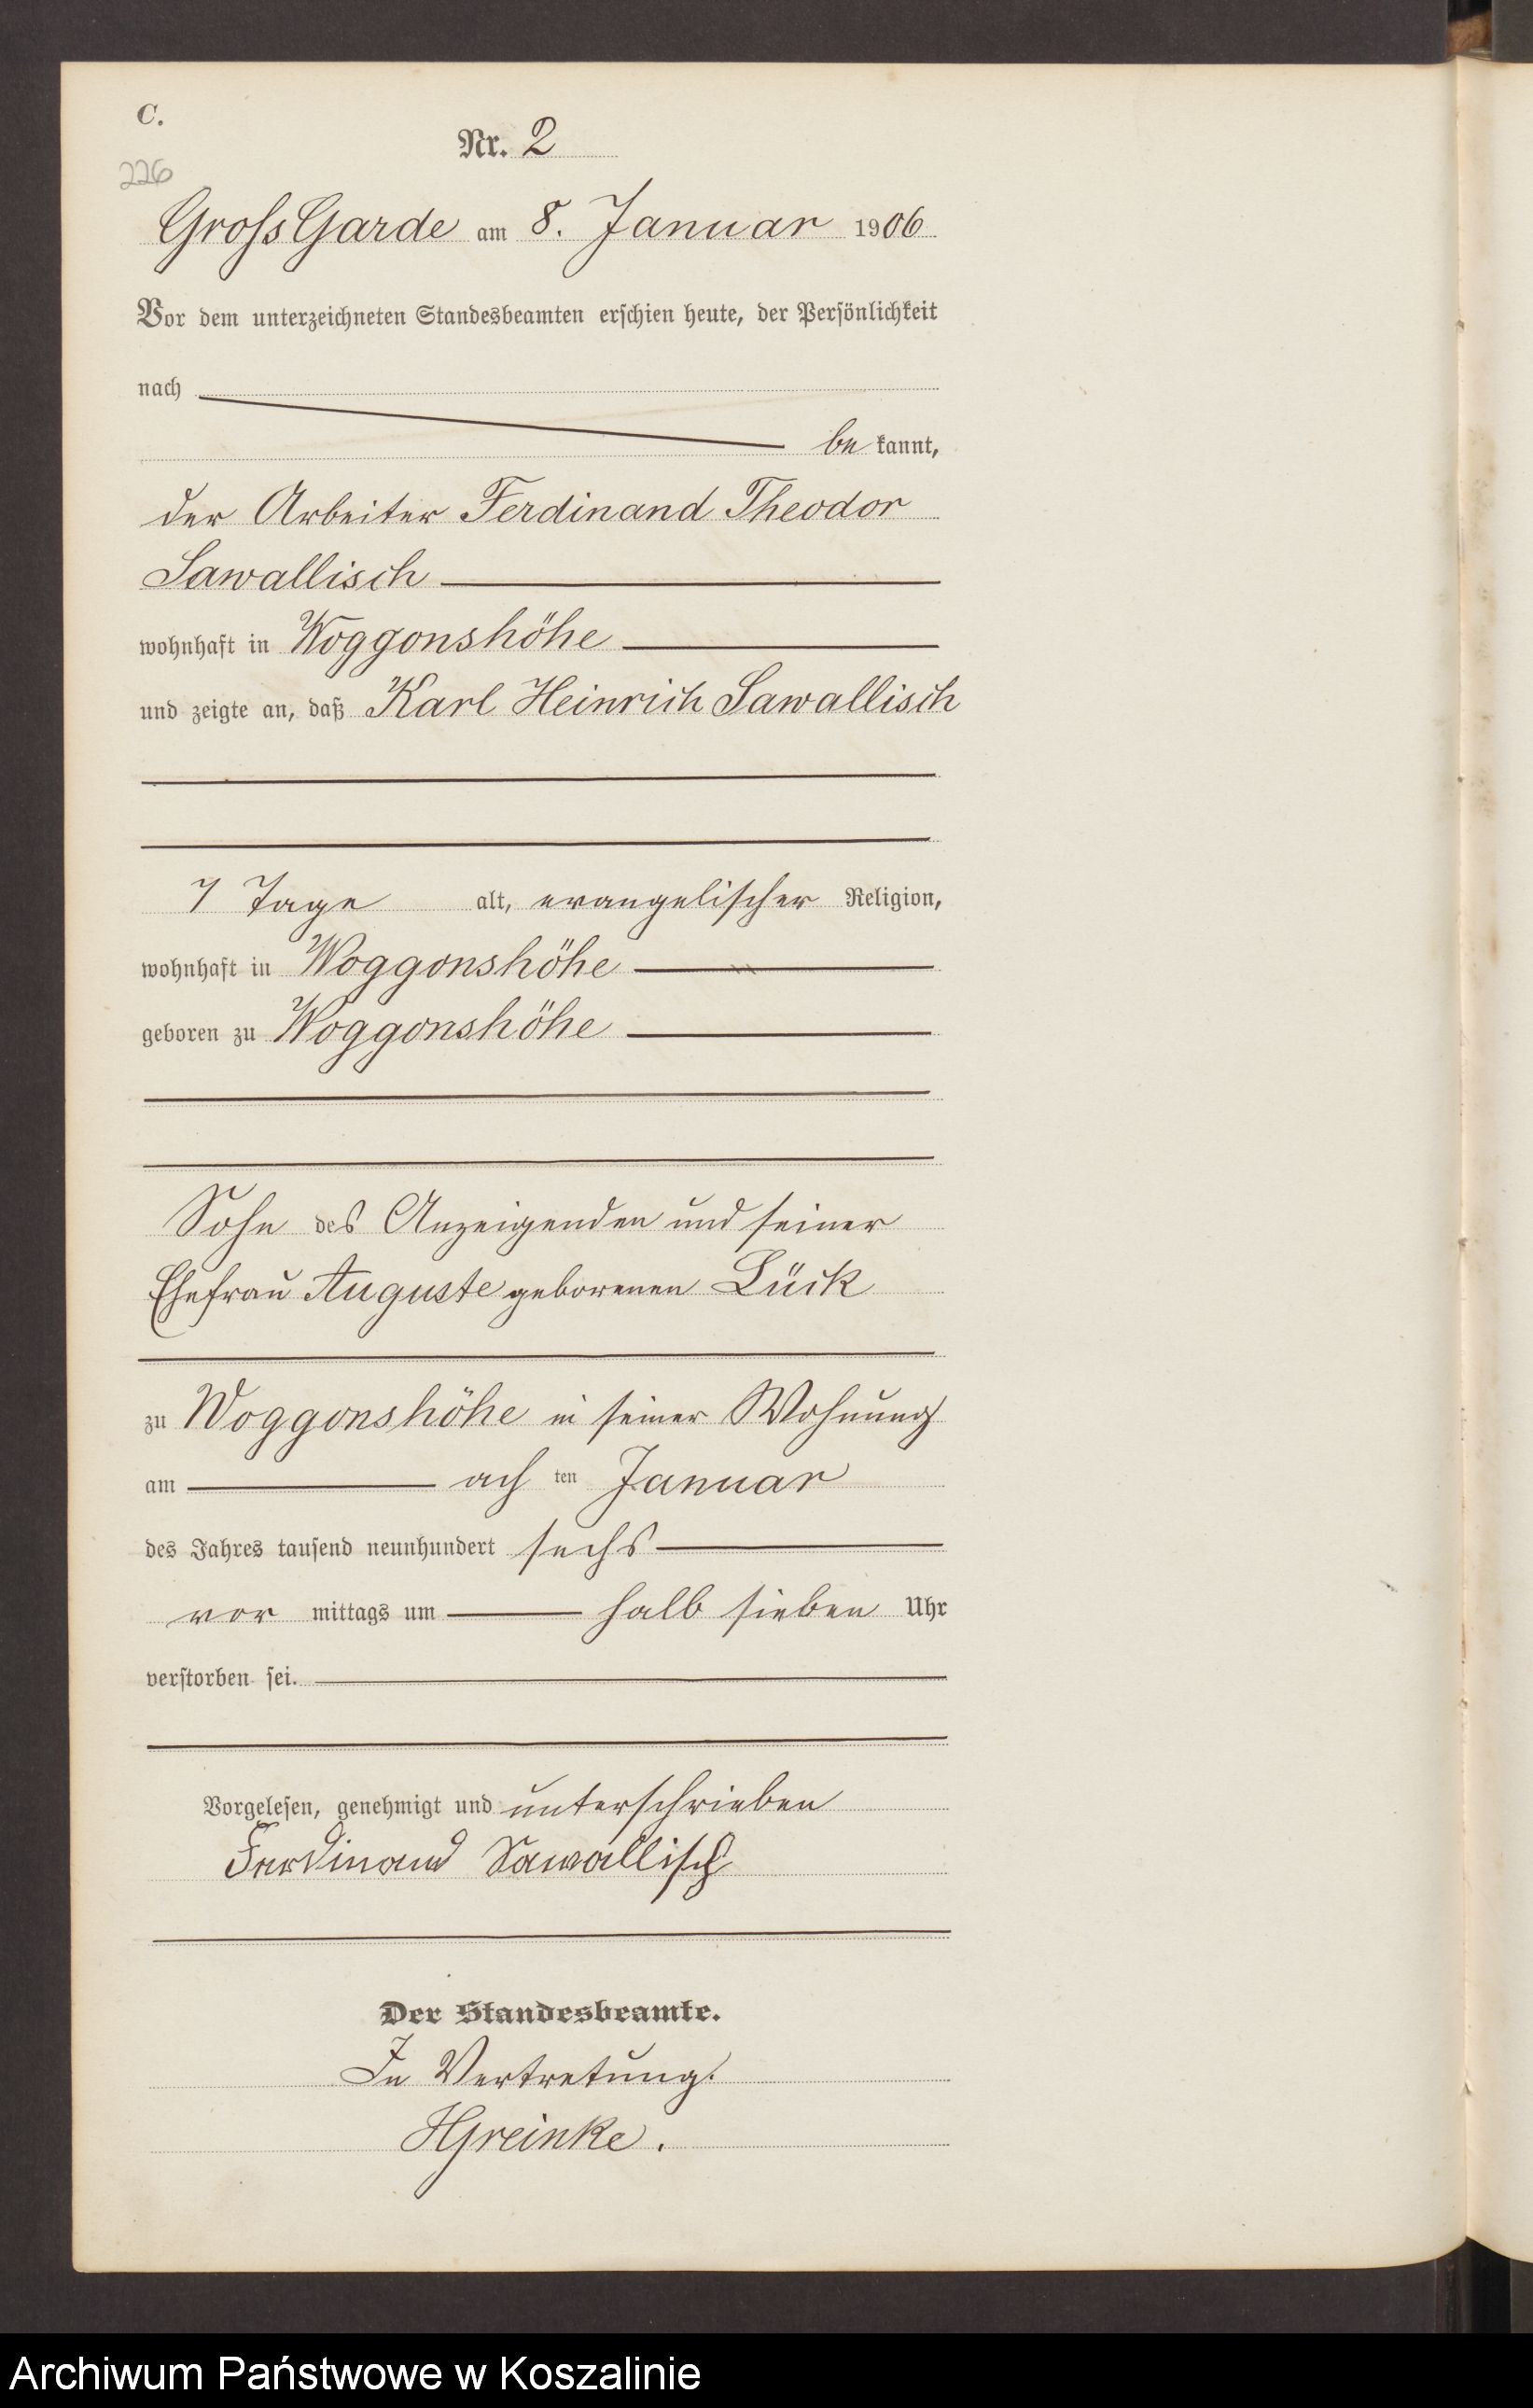 C.
Nr. 2
226
Gross Garde am 8. Januar 1906
Vor dem unterzeichneten Standesbeamten erschien heute, der Persönlichkeit
nach
be kannt,
der Arbeiter Ferdinand Theodor
Sawallisch
wohnhaft in Woggonshöhe
und zeigte an, daß Karl Heinrich Sawallisch
7 Tage alt, evangelischer Religion,
wohnhaft in Woggonshöhe
geboren zu Woggonshöhe
Sohn des Anzeigenden und seiner
Ehefrau Auguste geborenen Lück
zu Woggonshöhe in seiner Wohnung
am ach ten Januar
des Jahres tausend neunhundert sechs
vor mittags um halb sieben Uhr
verstorben sei.
Vorgelesen, genehmigt und unterschrieben
Ferdinand Sawallisch
Der Standesbeamte.
In Vertretung.
HGreinke.
Archiwum Państwowe w Koszalinie